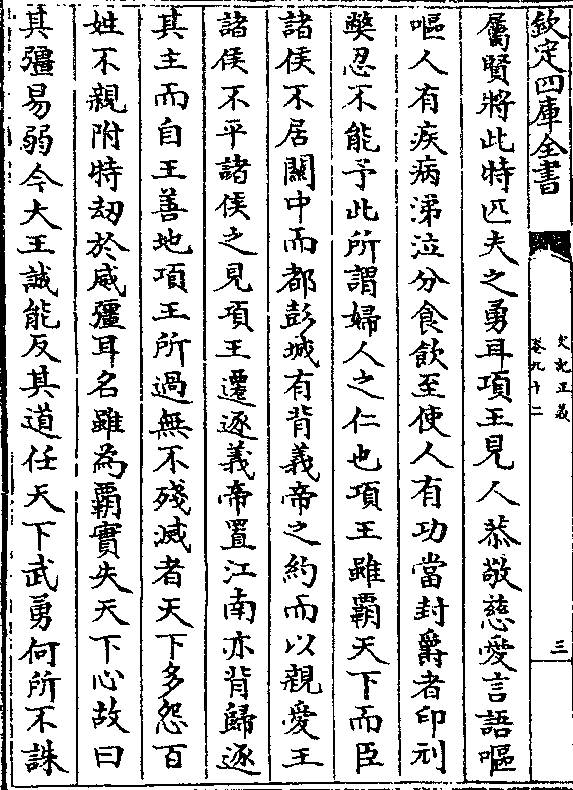 欽定四庫全書
史記正義
卷九十二
三
屬賢將此特匹夫之勇耳項王見人恭敬慈愛言語嘔
嘔人有疾病涕泣分食飲至使人有功當封爵者印刓
獘忍不能予此所謂婦人之仁也項王雖霸天下而臣
諸侯不居關中而都彭城有背義帝之約而以親愛王
諸侯不平諸侯之見項王遷逐義帝置江南亦皆歸逐
其主而自王善地項王所過無不殘滅者天下多怨百
姓不親附特劫於威彊耳名雖為覇實失天下心故曰
其彊易弱今大王誠能反其道任天下武勇何所不誅